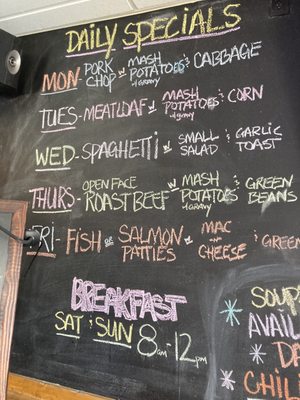 DAILY SPECIALS
MON- PORK CHOP w MASH POTATOES w/ gravy & CABBAGE
TUES- MEATLOAF w MASH POTATOES w/ gravy & CORN
WED- SPAGHETTI w SMALL SALAD & GARLIC TOAST
THURS- OPEN FACE ROAST BEEF w MASH POTATOES w/ gravy & GREEN BEANS
FRI- FISH or SALMON PATTIES w MAC n CHEESE & GREEN
BREAKFAST
SAT & SUN 8am-12pm
SOUP
AVAIL
DA
CHILI